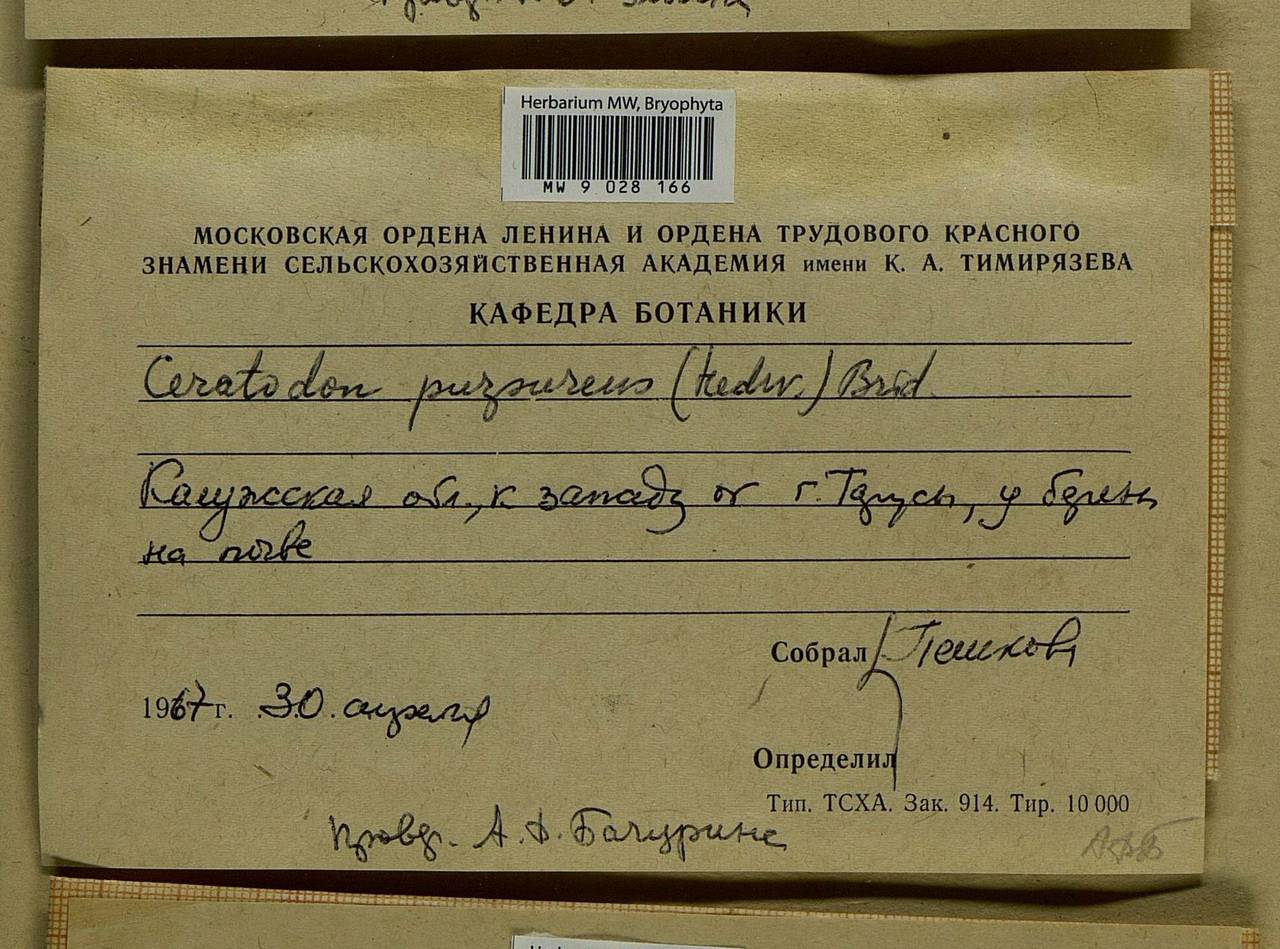 Herbarium MW, Bryophyta
MW 9 028 166
МОСКОВСКАЯ ОРДЕНА ЛЕНИНА И ОРДЕНА ТРУДОВОГО КРАСНОГО
ЗНАМЕНИ СЕЛЬСКОХОЗЯЙСТВЕННАЯ АКАДЕМИЯ имени К. А. ТИМИРЯЗЕВА
КАФЕДРА БОТАНИКИ
Ceratodon purpureus (Hedw.) Brid.
Калужская обл., к западу от г. Тарусы, у
на почве
Собрал Пешкова
1967 г. 30 апреля
Определил
Тип. ТСХА. Зак. 914. Тир. 10 000
А. Бачурина